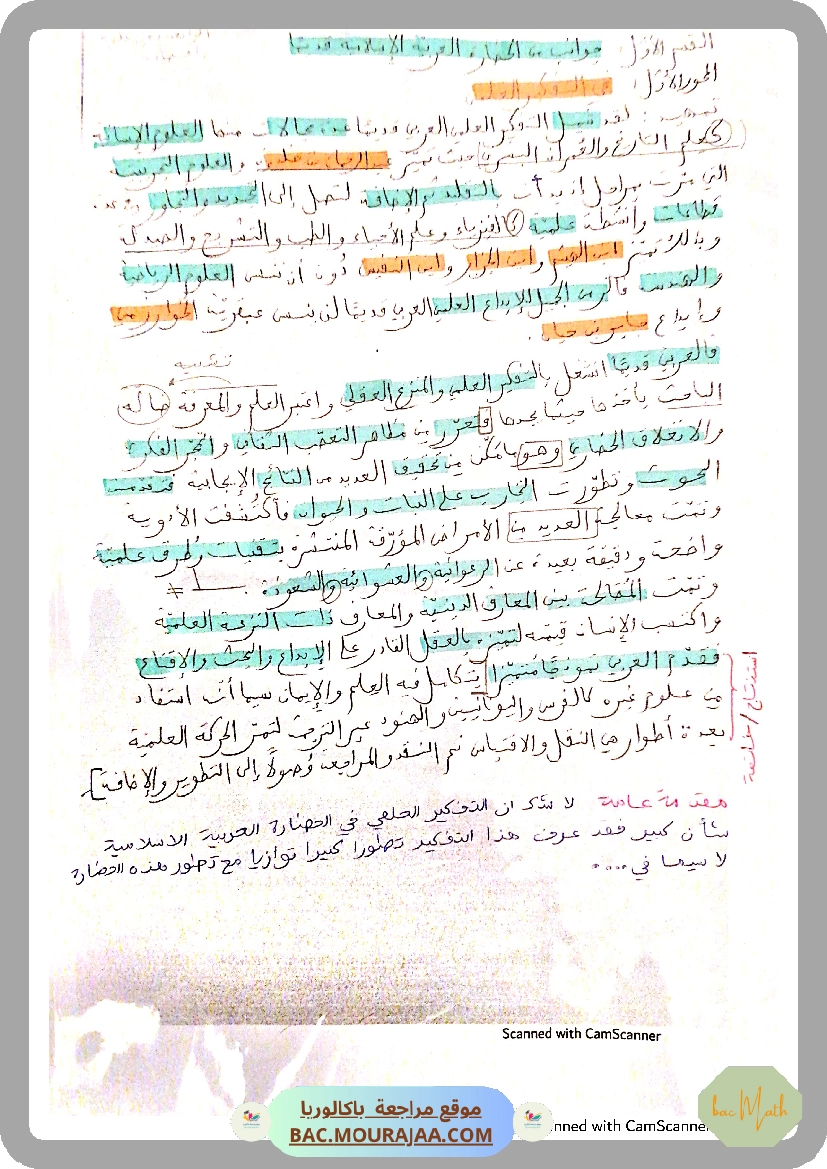 القسم الأوّل: جوانب من الحضارة العربيّة الإسلاميّة قديمًا
المحور الأوّل: في التفكير العلمي
تمهيد: لقد شمل التفكير العلمي العربي قديمًا عدّة مجالات منها العلوم الإنسانيّة
كعلم التاريخ والعمران البشري حيث تميّز عبد الرحمان بن خلدون والعلوم التجريبيّة
التي مرّت بمراحل إذ بدأت بالتقليد ثم الإضافة لتصل إلى التجديد والتجاوز
قطاعات وأنشطة علميّة كالفيزياء وعلم الأحياء والطب والتشريح والصيدلة
وبذلك تميّز ابن الهيثم وابن الجزار وابن النفيس دون أن ننسى العلوم الرياضيّة
والهندسة فالزمن الجميل للإبداع العلمي العربي قديمًا لن ينسى عبقريّة الخوارزمي
وإبداع جابر بن حيان
نفسه
فالعربي قديمًا انشغل بالتفكير العلمي والمنزع العقلي واعتبر العلم والمعرفة ضالّة
الباحث يأخذها حيثما يجدها فتحرّر من مظاهر التعصّب الثقافي والتحجّر الفكري
والانغلاق الحضاري وهو ما مكّن من تحقيق العديد من النتائج الإيجابية فتقدّمت
البحوث وتطوّرت التجارب على النبات والحيوان فاكتُشفت الأدوية
وتمّت معالجة العديد من الأمراض المؤرّقة المنتشرة بتقنيات وطرق علميّة
واضحة ودقيقة بعيدة عن الرعوانيّة والعشوائيّة والشعوذة
وتمّت المُصالحة بين المعارف الدينيّة والمعارف ذات النزعة العلميّة
واكتسب الإنسان قيمته لتميّزه بالعقل القادر على الإبداع والبحث والإقناع
فقدّم العربي نموذجًا مُتميّزا يتكامل فيه العلم والإيمان سيما أنّه استفاد
من علوم غيره كالفرس واليونانيّين والهنود عبر الترجمة لتمرّ الحركة العلميّة
بعدة أطوار هي النقل والاقتباس ثم النقد والمراجعة وُصولًا إلى التطوير والإضافة
استنتاج/خاتمة
مقدمة عامة لا شك ان التفكير العلمي في الحضارة العربية الاسلامية
شأن كبير فقد عرف هذا التفكير تطورا كبيرا توازيا مع تطور هذه الحضارة
لا سيما في....
Scanned with CamScanner
موقع مراجعة باكالوريا
BAC.MOURAJAA.COM
nned with CamScanner
bac Math